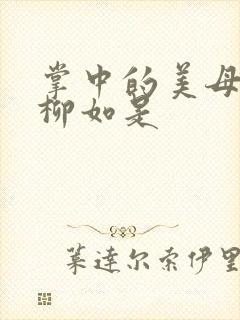 掌中的美母
柳如是
葉達尔索伊里